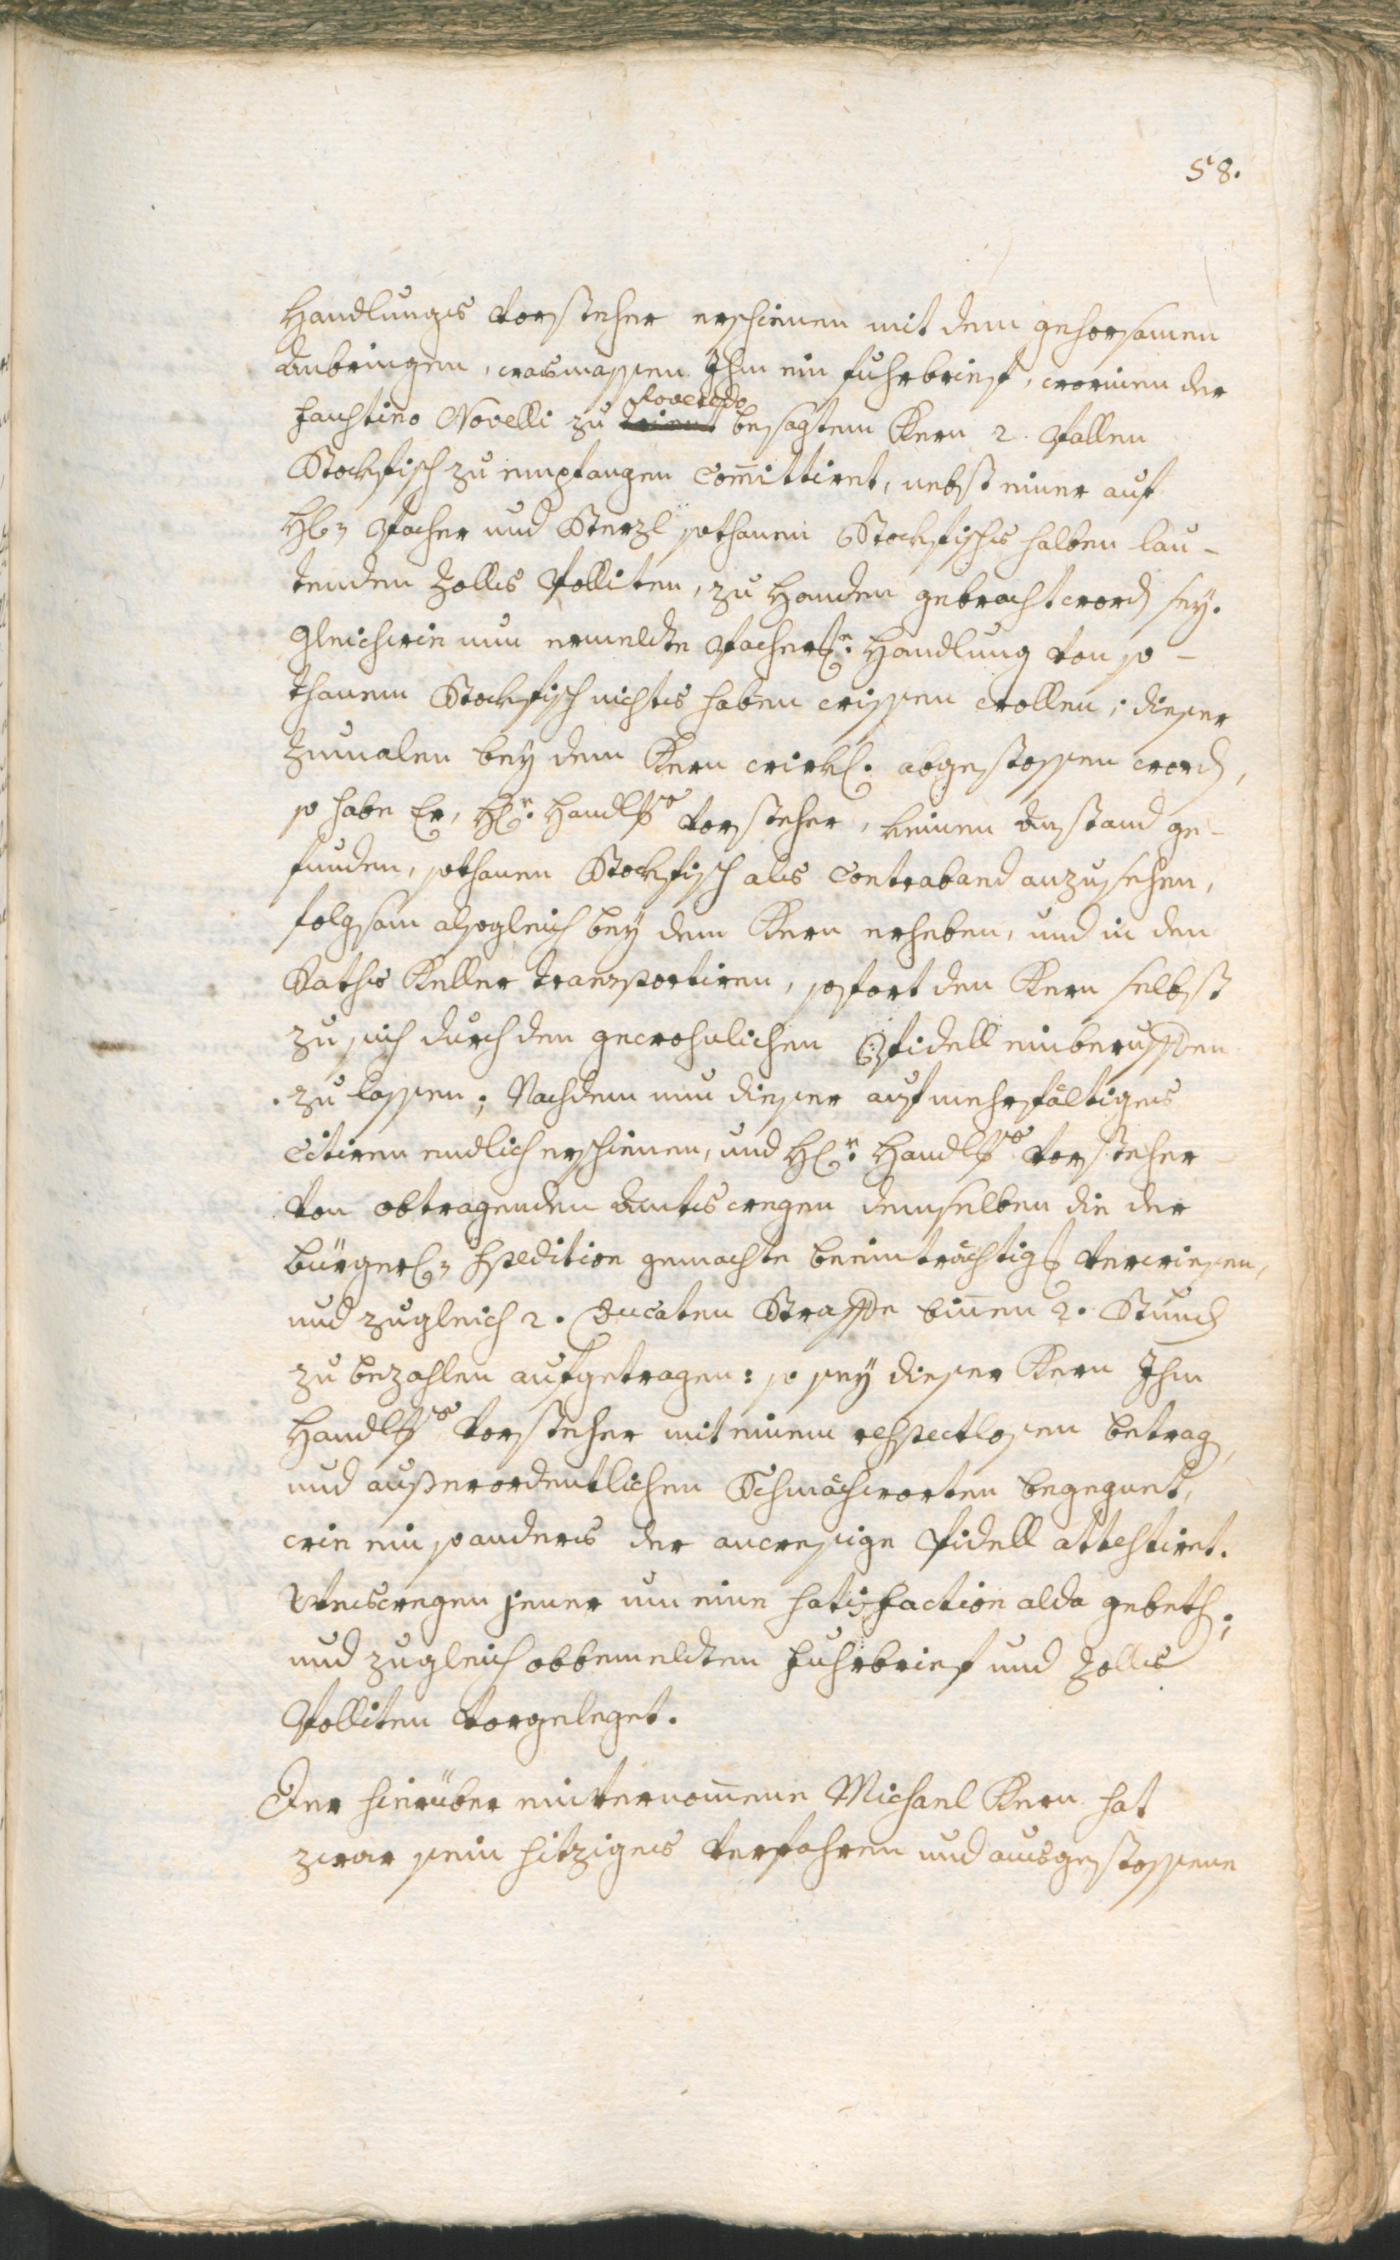 58.
Handlungs Vorsteher erschienen mit dem gehorsamen
Anbringen, wasmassen Ihm ein Fuhrbrief, worinen der
Faustino Novelli zu Roveredo besagtem Kern 2. Pallen
Stockfisch zu empfangen com̄ittiret, nebst einer auf
H: Pacher und Sterzl sothanen Stockfisches halben lau-
tenden Zolls Polliten, zu Handen gebracht word sey.
Gleichwie nun ermeldte Pacher: Handlung von so-
thanem Stockfisch nichts haben wissen wollen; dieser
zumalen bey dem Kern wirkl. abgestossen word,
so habe Er, H: Handlgs Vorsteher, keinen Anstand ge-
funden, sothanen Stockfisch als Contraband anzusehen,
folgsam alsogleich bey dem Kern erheben, und in den
Raths Keller transportiren, sofort den Kern selbst
zu sich durch den gewohnlichen Pidell einberuffen
zu lassen; Nachdem nun dieser auf mehrfältiges
Citiren endlich erschienen, und H: Handlgs Vorsteher
von obtragenden Amts wegen demselben die der
bürgerl: Spedition gemachte beeinträchtig verwiesen,
und zugleich 2. Ducaten Straffe bin̄en 2. Stund
zu bezahlen aufgetragen: so sey dieser Kern Ihm
Handlgs Vorsteher mit einem respectlosen betrag,
und außerordentlichen Schmachworten begegnet,
wie ein so anders der anwesige Pidell attestiret.
Weswegen jener um eine Satisfaction alda gebeth;
und zugleich obbemeldten Fuhrbrief und Zolls
Polliten vorgeleget.
Der hierüber einvernom̄ene Michael Kern hat
zwar sein hitziges Verfahren und ausgestossene